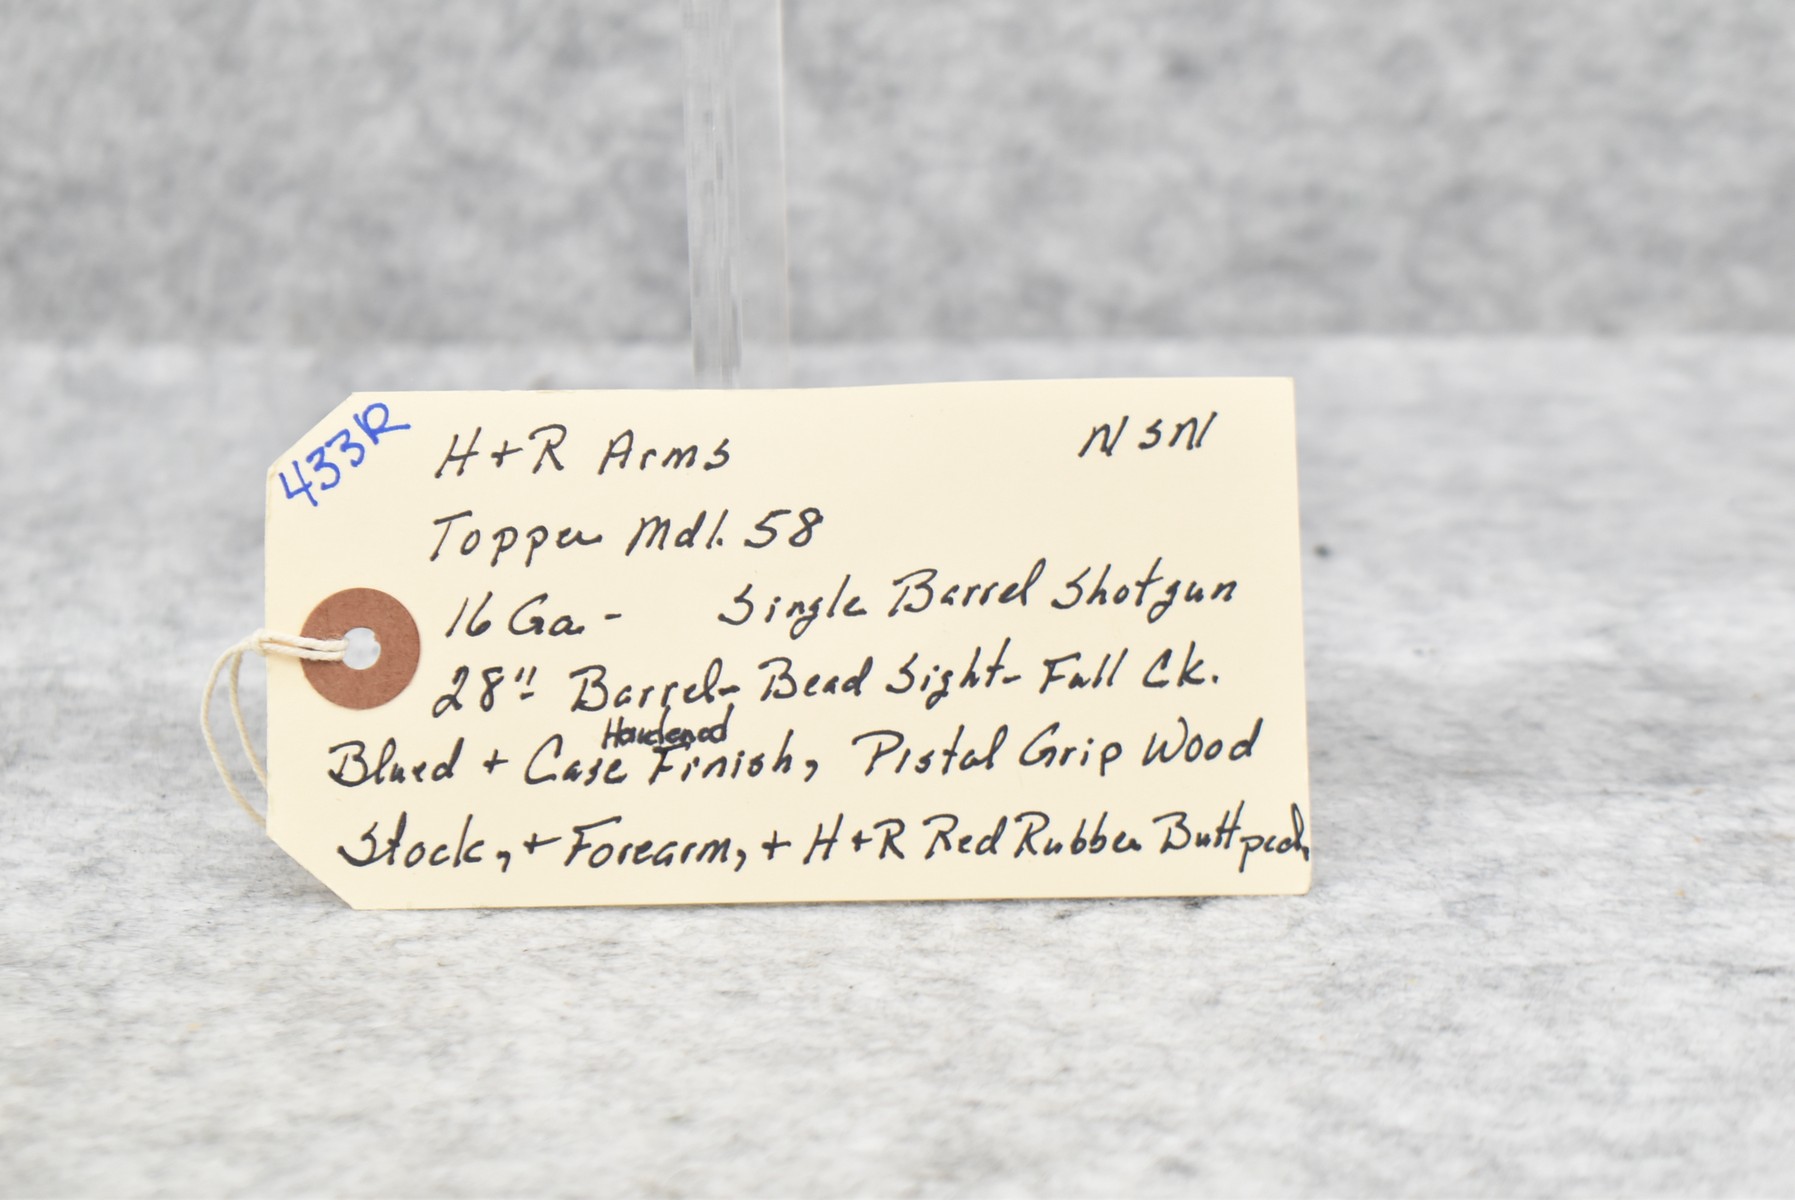 433R
H+R Arms NSN
Topper Mdl. 58
16 Ga. - Single Barrel Shotgun
28" Barrel- Bead Sight- Full Ck.
Hardened
Blued + Case Finish, Pistol Grip Wood
Stock, + Forearm, + H+R Red Rubber Buttpad